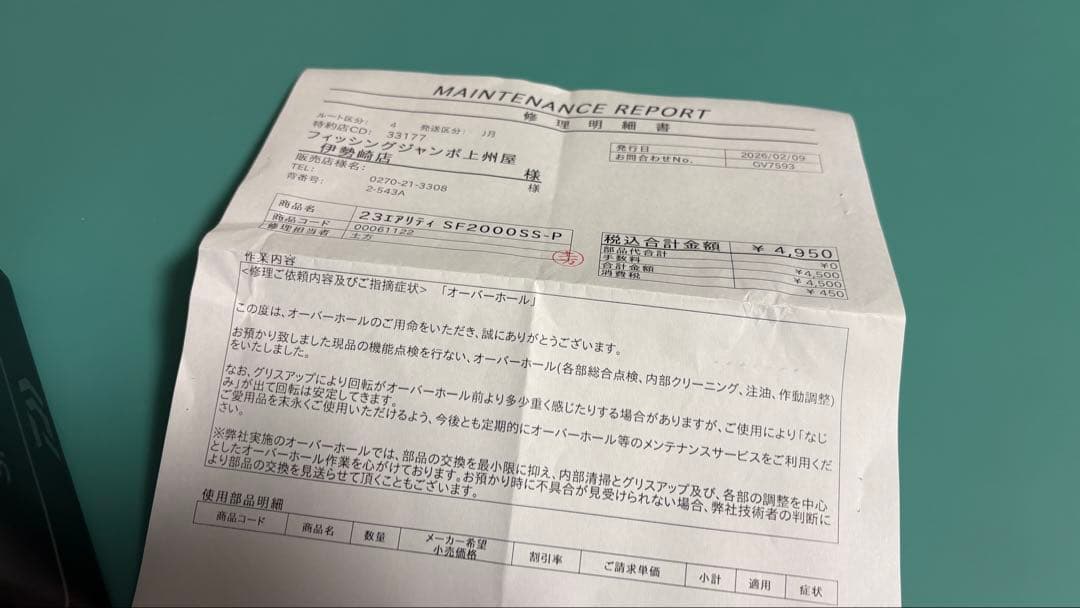 MAINTENANCE REPORT
修理明細書
ルート区分: 4 発送区分: J月
特約店CD: 33177
フィッシングジャンボ上州屋
伊勢崎店 様
販売店様名: 様
TEL: 0270-21-3308
背番号: 2-543A
発行日 2026/02/09
お問合わせNo. GV7593
商品名 23エアリティ SF2000SS-P
商品コード 00061122
修理担当者 土方
税込合計金額 ¥ 4,950
部品代合計 ¥0
手数料 ¥4,500
合計金額 ¥ 4,500
消費税 ¥ 450
作業内容
<修理ご依頼内容及びご指摘症状> 「オーバーホール」
この度は、オーバーホールのご用命をいただき、誠にありがとうございます。
お預かり致しました現品の機能点検を行ない、オーバーホール(各部総合点検、内部クリーニング、注油、作動調整)
をいたしました。
なお、グリスアップにより回転がオーバーホール前より多少重く感じたりする場合がありますが、ご使用により「なじ
み」が出て回転は安定してきます。
ご愛用品を末永くご使用いただけるよう、今後とも定期的にオーバーホール等のメンテナンスサービスをご利用くだ
さい。
※弊社実施のオーバーホールでは、部品の交換を最小限に抑え、内部清掃とグリスアップ及び、各部の調整を中心
としたオーバーホール作業を心がけております。お預かり時に不具合が見受けられない場合、弊社技術者の判断に
より部品の交換を見送らせて頂くこともございます。
使用部品明細
商品コード 商品名 数量 メーカー希望小売価格 割引率 ご請求単価 小計 適用 症状